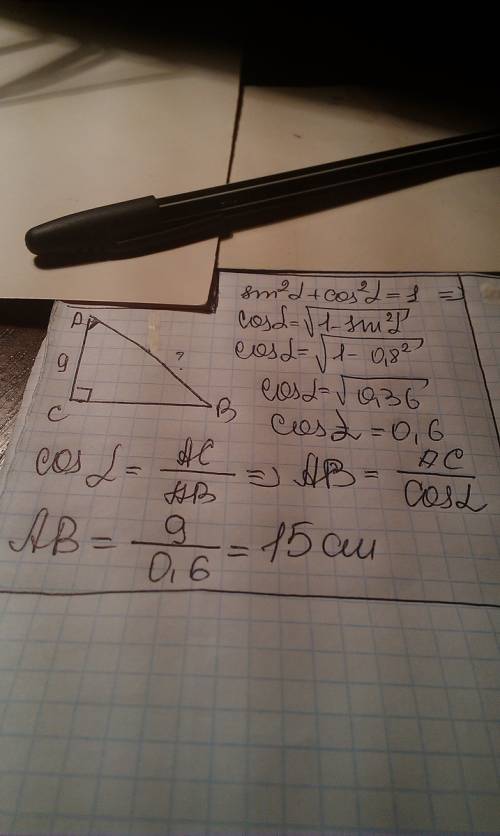 sin²α + cos²α = 1 =>
cosα = √(1 - sin²α)
cosα = √(1 - 0,8²)
cosα = √0,36
cosα = 0,6
A
9
?
C
B
cosα = AC/AB => AB = AC/cosα
AB = 9/0,6 = 15 см